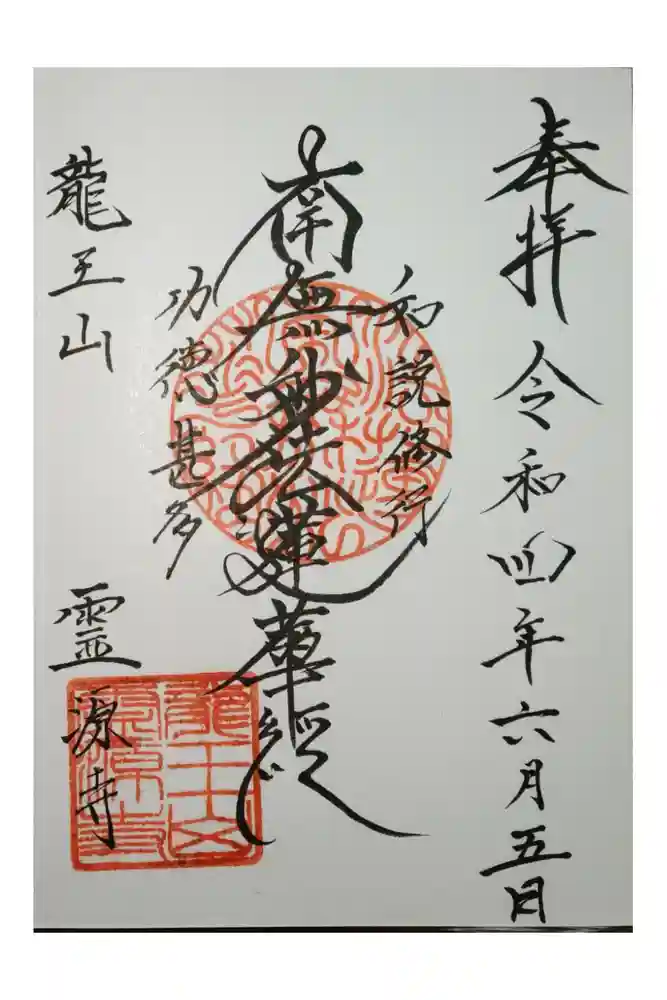 奉拝 令和四年六月五日
如説修行
南無妙法蓮華経
功徳甚多
龍王山
霊源寺
龍王山
霊源寺